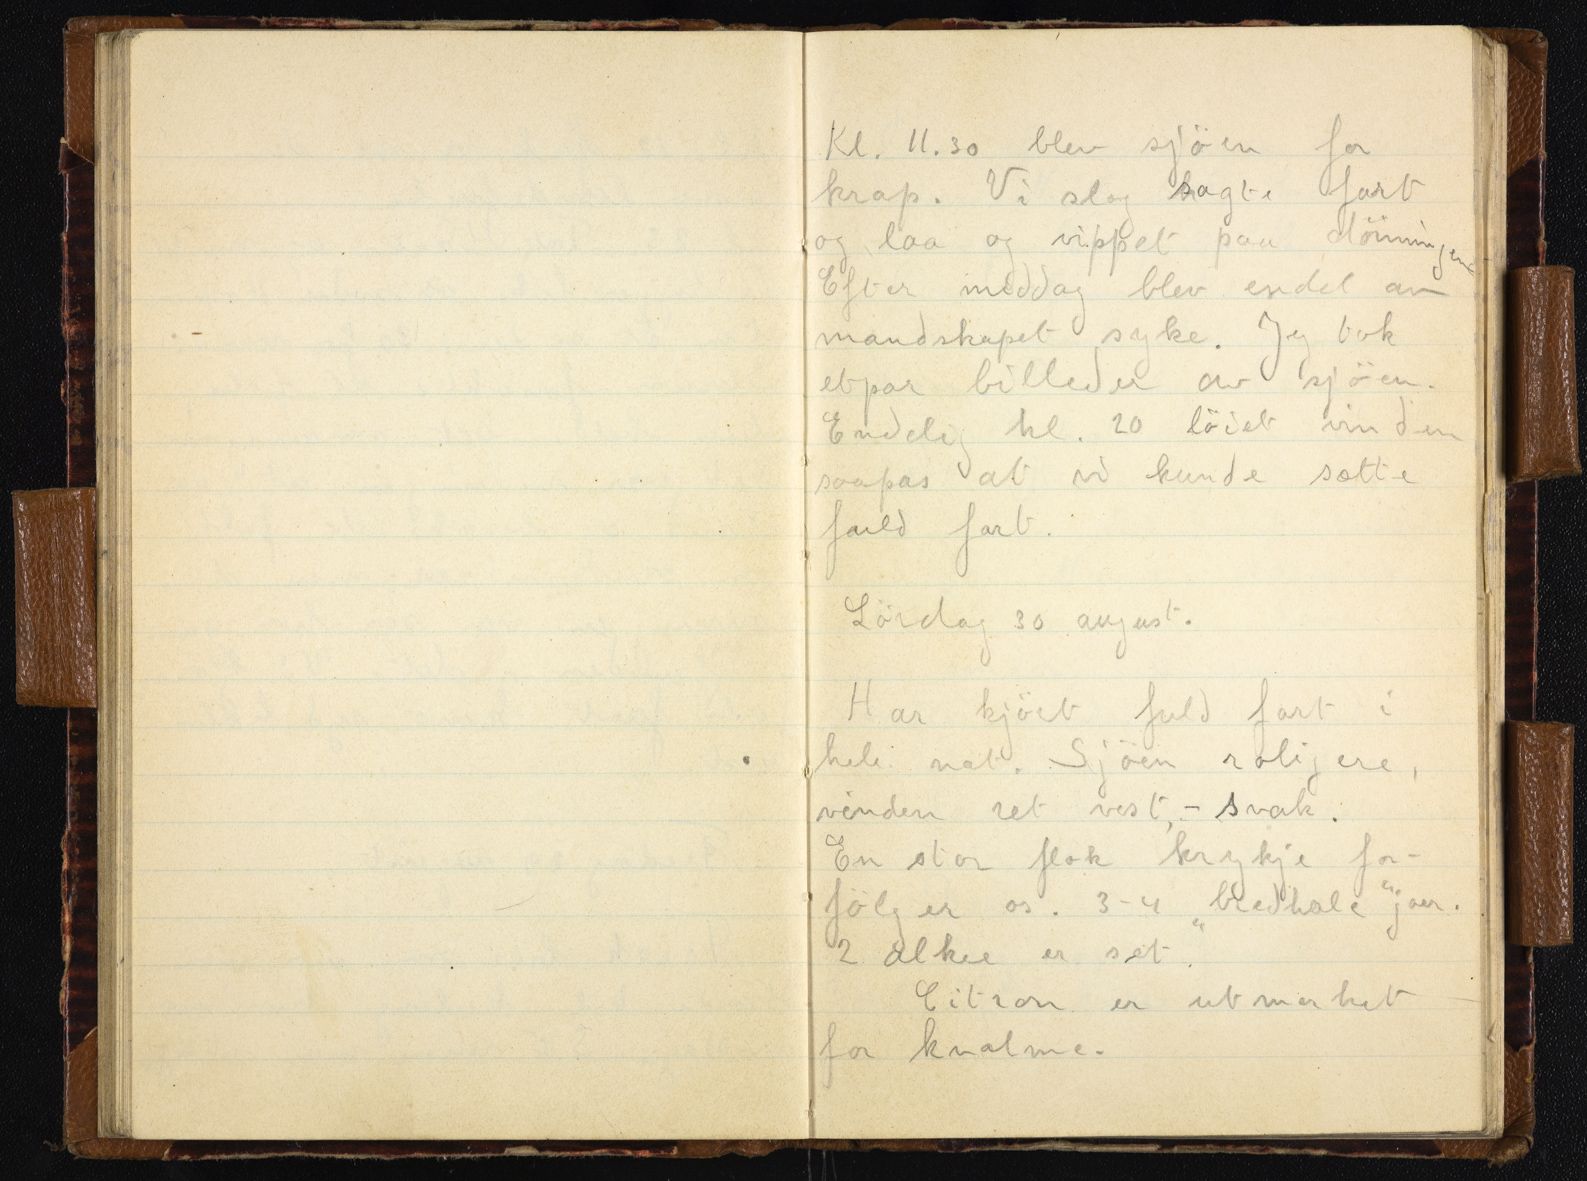 Kl. 11.30 blev sjöen for
krap. Vi slog sagte fart
og laa og vippet paa dönningene
Efter middag blev endel av
mandskapet syke. Jeg tok
etpar billeder av sjöen.
Endelig kl. 20 löiet vinden
saapas at vi kunde sætte
fuld fart.
Lördag 30 august.
Har kjört fuld fart i
hele nat. Sjöen roligere,
vinden ret vest, - svak.
En stor flok krykje for-
fölger os. 3-4 „bredhale" joer.
2 alker er set.
Citron er utmerket
for kvalme.